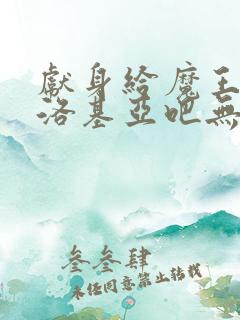 獻身給魔王
洛基亞吧無
叁叁肆
未經同意禁止轉載